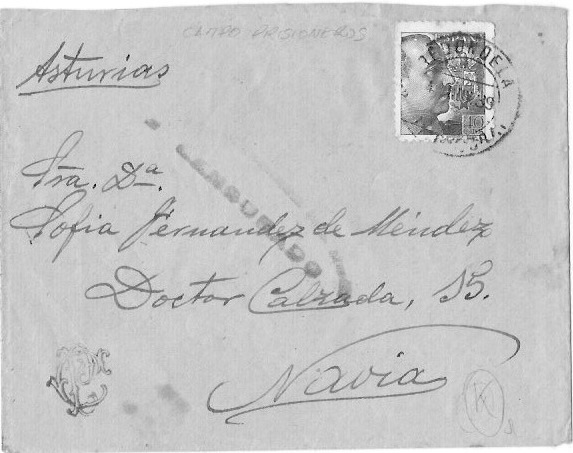 CAMPO PRISIONEROS
Asturias
Sra. Dª.
Sofia Fernandez de Méndez
Doctor Calzada, 15.
Navia